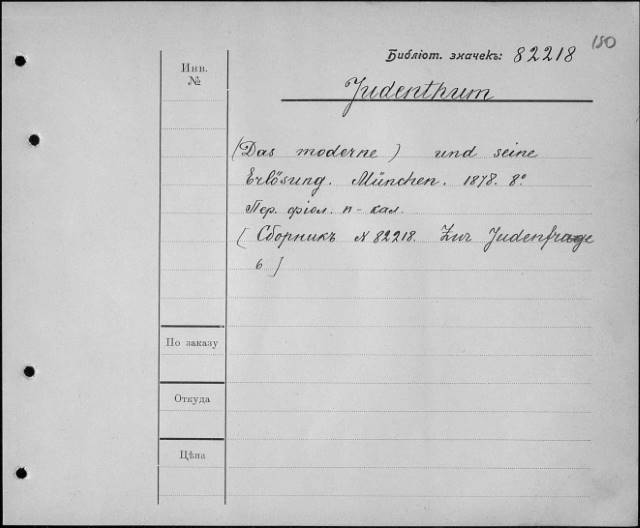 150
Библіот. значекъ: 82218
Инв. №
Judenthum
(Das moderne) und seine
Erlösung. München. 1878. 8º
Пер. фіол. п-кал.
(Сборникъ N 82218. Zur Judenfrage
6)
По заказу
Откуда
Цѣна